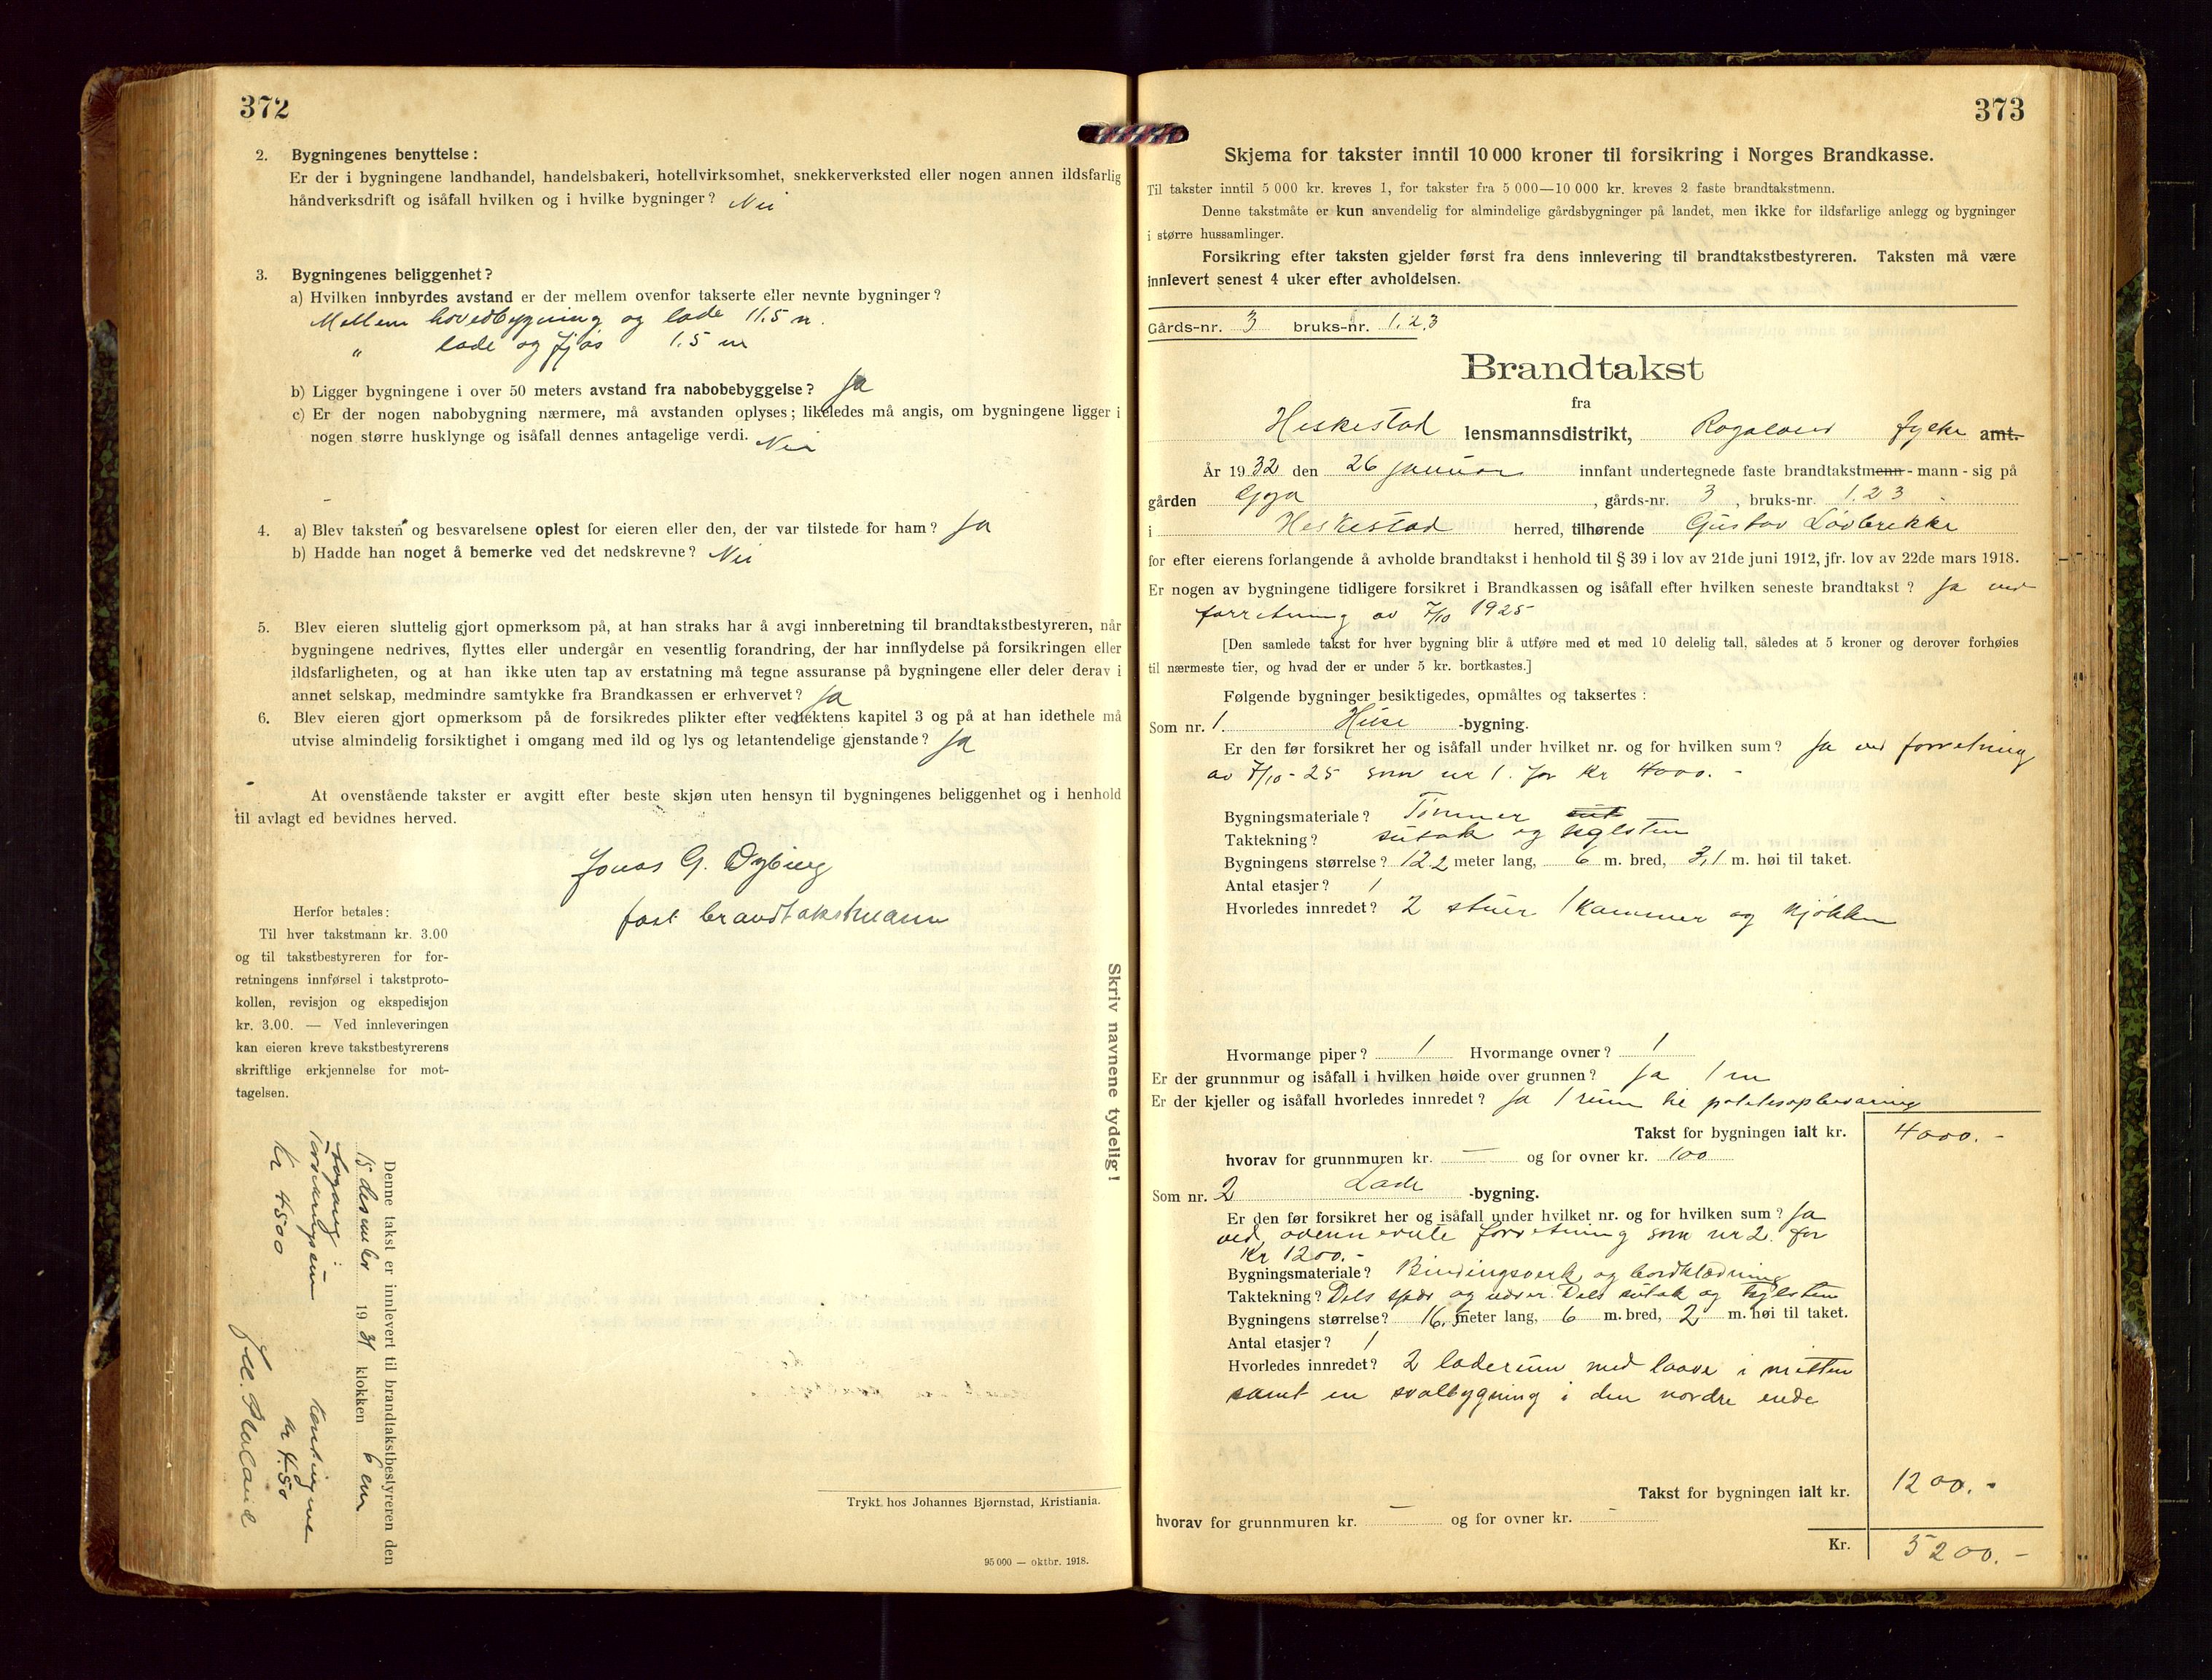 372
2. Bygningenes benyttelse:
Er der i bygningene landhandel, handelsbakeri, hotellvirksomhet, snekkerverksted eller nogen annen ildsfarlig
håndverksdrift og isåfall hvilken og i hvilke bygninger? Nei
3. Bygningenes beliggenhet?
a) Hvilken innbyrdes avstand er der mellem ovenfor takserte eller nevnte bygninger?
Mellem hovedbygning og lade 11.5 m.
" lade og fjøs 1.5 m
b) Ligger bygningene i over 50 meters avstand fra nabobebyggelse? Ja
c) Er der nogen nabobygning nærmere, må avstanden oplyses; likeledes må angis, om bygningene ligger i
nogen større husklynge og isåfall dennes antagelige verdi. Nei
4. a) Blev taksten og besvarelsene oplest for eieren eller den, der var tilstede for ham? Ja
b) Hadde han noget å bemerke ved det nedskrevne? Nei
5. Blev eieren sluttelig gjort opmerksom på, at han straks har å avgi innberetning til brandtakstbestyreren, når
bygningene nedrives, flyttes eller undergår en vesentlig forandring, der har innflydelse på forsikringen eller
ildsfarligheten, og at han ikke uten tap av erstatning må tegne assuranse på bygningene eller deler derav i
annet selskap, medmindre samtykke fra Brandkassen er erhvervet? Ja
6. Blev eieren gjort opmerksom på de forsikredes plikter efter vedtektens kapitel 3 og på at han idethele må
utvise almindelig forsiktighet i omgang med ild og lys og letantendelige gjenstande? Ja
At ovenstående takster er avgitt efter beste skjøn uten hensyn til bygningenes beliggenhet og i henhold
til avlagt ed bevidnes herved.
Jonas G.
fast brandtakstmann
Herfor betales:
Til hver takstmann kr. 3.00
og til takstbestyreren for for-
retningens innførsel i takstproto-
kollen, revisjon og ekspedisjon
kr. 3.00. — Ved innleveringen
kan eieren kreve takstbestyrerens
skriftlige erkjennelse for mot-
tagelsen.
Skriv navnene tydelig!
Denne takst er innlevert til brandtakstbestyreren den
15 desember 1931 klokken 6 em
Avgang:
Forsikringssum Kontingent
kr 4500 kr 4.50
Trykt hos Johannes Bjørnstad, Kristiania.
95 000 — oktbr. 1918.
373
Skjema for takster inntil 10 000 kroner til forsikring i Norges Brandkasse.
Til takster inntil 5 000 kr. kreves 1, for takster fra 5 000—10 000 kr. kreves 2 faste brandtakstmenn.
Denne takstmåte er kun anvendelig for almindelige gårdsbygninger på landet, men ikke for ildsfarlige anlegg og bygninger
i større hussamlinger.
Forsikring efter taksten gjelder først fra dens innlevering til brandtakstbestyreren. Taksten må være
innlevert senest 4 uker efter avholdelsen.
Gårds-nr. 3 bruks-nr. 1.2.3
Brandtakst
fra
Heskestad lensmannsdistrikt, Rogaland fylke amt.
År 1932 den 26 januar innfant undertegnede faste brandtakstmenn - mann - sig på
gården Gya, gårds-nr. 3, bruks-nr. 1.2 3
i Heskestad herred, tilhørende Gustav Løvbrekke
for efter eierens forlangende å avholde brandtakst i henhold til § 39 i lov av 21de juni 1912, jfr. lov av 22de mars 1918.
Er nogen av bygningene tidligere forsikret i Brandkassen og isåfall efter hvilken seneste brandtakst? Ja ved
forretning av 7/10 1925
[Den samlede takst for hver bygning blir å utføre med et med 10 delelig tall, således at 5 kroner og derover forhøies
til nærmeste tier, og hvad der er under 5 kr. bortkastes.]
Følgende bygninger besiktigedes, opmåltes og taksertes:
Som nr. 1. Huse -bygning.
Er den før forsikret her og isåfall under hvilket nr. og for hvilken sum? Ja ved forretning
av 7/10-25 som nr 1. for Kr 4000.-
Bygningsmateriale? Tømmer sut
Taktekning? sutak og teglsten
Bygningens størrelse? 12.2 meter lang, 6 m. bred, 3,1 m. høi til taket.
Antal etasjer? 1
Hvorledes innredet? 2 stuer 1 kammer og kjøkken
Hvormange piper? 1 Hvormange ovner? 1
Er der grunnmur og isåfall i hvilken høide over grunnen? Ja 1 m
Er der kjeller og isåfall hvorledes innredet? Ja 1 rum til potetesopbevaring
Takst for bygningen ialt kr. 4000.-
hvorav for grunnmuren kr. — og for ovner kr. 100
Som nr. 2 Lade -bygning.
Er den før forsikret her og isåfall under hvilket nr. og for hvilken sum? Ja
ved ovennevnte forretning som nr 2. for
Kr 1200.-
Bygningsmateriale? Bindingsverk og bordklædning
Taktekning? Dels spær og næver. Dels sutak og teglsten
Bygningens størrelse? 16,5 meter lang, 6 m. bred, 2 m. høi til taket.
Antal etasjer? 1
Hvorledes innredet? 2 laderum med laave i mitten
samt en svalbygning i den nordre ende
Takst for bygningen ialt kr. 1200.-
hvorav for grunnmuren kr. — og for ovner kr. -
Kr. 5200.-